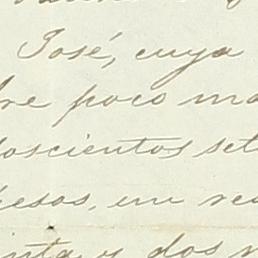 José, cuya
re poco ma
doscientos set
pesos, en rea
inta y dos